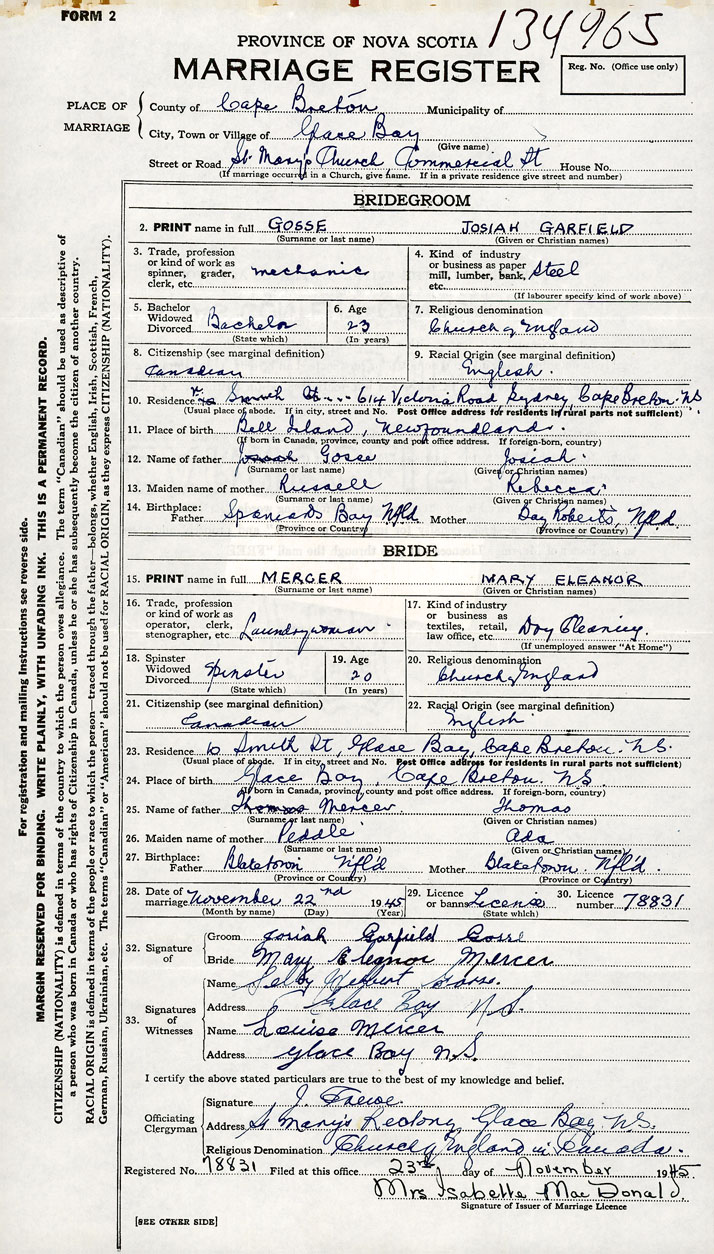 FORM 2
134965
PROVINCE OF NOVA SCOTIA
MARRIAGE REGISTER
Reg. No. (Office use only)
PLACE OF MARRIAGE
County of Cape Breton Municipality of
City, Town or Village of Glace Bay
(Give name)
Street or Road St. Mary's Church Commercial St House No.
(If marriage occurred in a Church, give name. If in a private residence give street and number)
BRIDEGROOM
2. PRINT name in full GOSSE JOSIAH GARFIELD
(Surname or last name) (Given or Christian names)
3. Trade, profession or kind of work as spinner, grader, clerk, etc. mechanic
4. Kind of industry or business as paper mill, lumber, bank, etc. Steel
(If labourer specify kind of work above)
5. Bachelor Widowed Divorced Bachelor
(State which)
6. Age 23
(In years)
7. Religious denomination
Church of England
8. Citizenship (see marginal definition)
Canadian
9. Racial Origin (see marginal definition)
English
10. Residence Smith St 614 Victoria Road Sydney, Cape Breton NS
(Usual place of abode. If in city, street and No. Post Office address for residents in rural parts not sufficient)
11. Place of birth Bell Island, Newfoundland.
(If born in Canada, province, county and post office address. If foreign-born, country)
12. Name of father Josiah Gosse Josiah
(Surname or last name) (Given or Christian names)
13. Maiden name of mother Russell Rebecca
(Surname or last name) (Given or Christian names)
14. Birthplace: Father Spaniards Bay Nfld. Mother Bay Roberts, Nfld.
(Province or Country) (Province or Country)
BRIDE
15. PRINT name in full MERCER MARY ELEANOR
(Surname or last name) (Given or Christian names)
16. Trade, profession or kind of work as operator, clerk, stenographer, etc. Laundrywoman
17. Kind of industry or business as textiles, retail, law office, etc. Dry Cleaning.
(If unemployed answer "At Home")
18. Spinster Widowed Divorced Spinster
(State which)
19. Age 20
(In years)
20. Religious denomination
Church of England
21. Citizenship (see marginal definition)
Canadian
22. Racial Origin (see marginal definition)
English
23. Residence 10 Smith St, Glace Bay, Cape Breton. N.S.
(Usual place of abode. If in city, street and No. Post Office address for residents in rural parts not sufficient)
24. Place of birth Glace Bay, Cape Breton. N.S.
(If born in Canada, province, county and post office address. If foreign-born, country)
25. Name of father Thomas Mercer Thomas
(Surname or last name) (Given or Christian names)
26. Maiden name of mother Peddle Ada
(Surname or last name) (Given or Christian names)
27. Birthplace: Father Blaketown Nfl'd Mother Blaketown. Nfl'd.
(Province or Country) (Province or Country)
28. Date of marriage November 22nd 1945
(Month by name) (Day) (Year)
29. Licence or banns License
(State which)
30. Licence number 78831
32. Signature of
Groom Josiah Garfield Gosse
Bride Mary Eleanor Mercer
33. Signatures of Witnesses
Name Selby Gosse
Address Glace Bay N.S.
Name Louise Mercer
Address Glace Bay N.S.
I certify the above stated particulars are true to the best of my knowledge and belief.
Officiating Clergyman
Signature J.
Address St Mary's Rectory, Glace Bay, N.S.
Religious Denomination Church of England in Canada.
Registered No. 78831 Filed at this office 23rd day of November 1945.
Mrs Isabelle MacDonald.
Signature of Issuer of Marriage Licence
[SEE OTHER SIDE]
For registration and mailing instructions see reverse side.
MARGIN RESERVED FOR BINDING. WRITE PLAINLY, WITH UNFADING INK. THIS IS A PERMANENT RECORD.
CITIZENSHIP (NATIONALITY) is defined in terms of the country to which the person owes allegiance. The term "Canadian" should be used as descriptive of
a person who was born in Canada or who has rights of Citizenship in Canada, unless he or she has subsequently become the citizen of another country.
RACIAL ORIGIN is defined in terms of the people or race to which the person—traced through the father—belongs, whether English, Irish, Scottish, French,
German, Russian, Ukrainian, etc. The terms "Canadian" or "American" should not be used for RACIAL ORIGIN, as they express CITIZENSHIP (NATIONALITY).